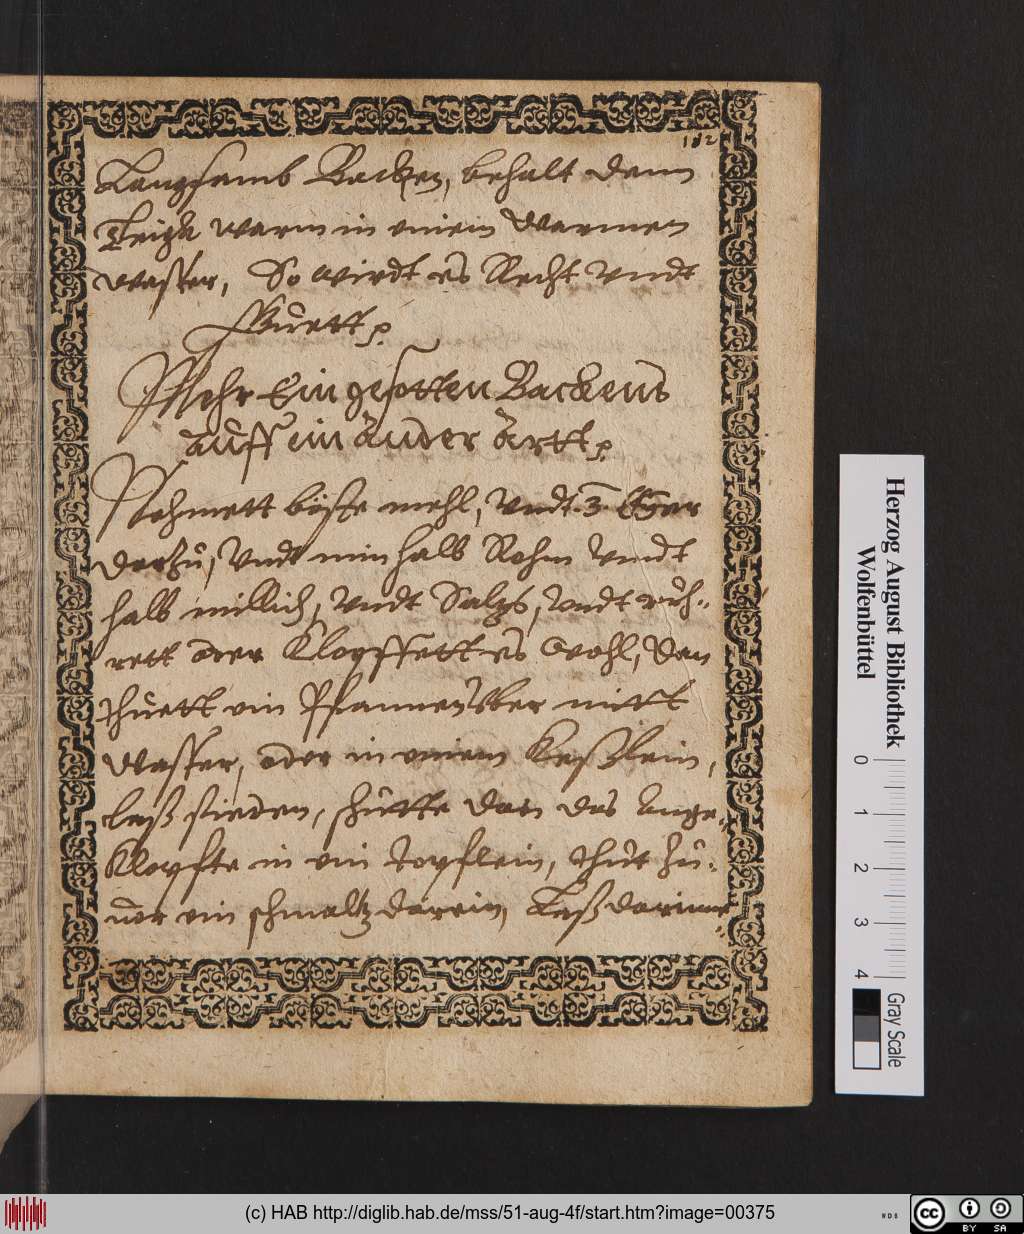 182
Langsamb Backen, behalt denn
Teigk warm in einem Warmen
Wasser, So wirdt es Recht Vndt
Guett
Mehr Ein gesotten Backens
auff ein ander artt
Nehmett böste mehl, Vndt 3 Eÿer
darzu, Vndt ein halb Rohm Vndt
halb millich, Vndt Saltzs, Vndt rüh-
rett oder Klopffett es Wohl, Den
thuett ein Pfannen Vber mitt
Wasser, oder in einem Keßlein,
laß sieden, schütte dan das Ange-
Klopfte in ein topflein, thut zu-
vor ein schmaltz darein, Laß darinne
Herzog August Bibliothek
Wolfenbüttel
0 1 2 3 4
Gray Scale
(c) HAB http://diglib.hab.de/mss/51-aug-4f/start.htm?image=00375
WDB
cc
BY SA